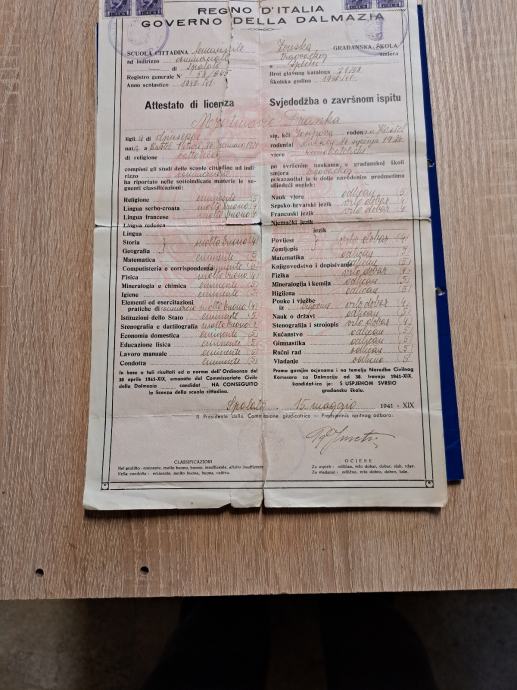 REGNO D'ITALIA
GOVERNO DELLA DALMAZIA
SCUOLA CITTADINA
ad indirizzo
di Spalato
Registro generale N°
Anno scolastico
GRAĐANSKA ŠKOLA
smjera
Broj glavnog kataloga
Školska godina
Attestato di licenza
Svjedodžba o završnom ispitu
Franka
figli a di Giuseppe
nat a
di religione cattolica
compiuti gli studi della scuola cittadina ad indi-
rizzo
ha riportato nelle sottoindicate materie le se-
guenti classificazioni:
sip. kći rođen
rođen(a)
vjere
po svršenim naukama u građanskoj školi
smjera
pokazao(la) je u dolje navedenim predmetima
slijedeći uspjeh:
Religione eminente 5
Lingua serbo-croata molto buono 4
Lingua francese molto buono 4
Lingua tedesca
Lingua
Storia molto buono 4
Geografia eminente 5
Matematica eminente 5
Computisteria e corrispondenza eminente 5
Fisica molto buono 4
Mineralogia e chimica eminente 5
Igiene eminente 5
Elementi ed esercitazioni
pratiche di molto buono 4
Istituzioni dello Stato eminente 5
Stenografia e dattilografia molto buono
Economia domestica eminente 5
Educazione fisica eminente 5
Lavoro manuale eminente 5
Condotta eminente 5
Nauk vjere odličan 5
Srpsko-hrvatski jezik vrlo dobar 4
Francuski jezik vrlo dobar 4
Njemački jezik
jezik
Povijest vrlo dobar 4
Zemljopis odličan 5
Matematika odličan 5
Knjigovodstvo i dopisivanje odličan 5
Fizika vrlo dobar 4
Mineralogija i kemija odličan 5
Higijena odličan 5
Pouke i vježbe
iz vrlo dobar 4
Nauk o državi odličan 5
Stenografija i strojopis vrlo dobar 4
Kućanstvo odličan 5
Gimnastika odličan 5
Ručni rad odličan 5
Vladanje odlično 5
In base a tali risultati ed a norma dell'Ordinanza del
28 aprile 1941-XIX, emanata dal Commissariato Civile
della Dalmazia candidat HA CONSEGUITO
la licenza della scuola cittadina.
Prema gornjim ocjenama i na temelju Naredbe Civilnog
Komesara za Dalmaciju od 28. travnja 1941-XIX.
kandidat-kinja je: S USPJEHOM SVRŠIO
građansku školu.
Spalato, 15 maggio 1941 - XIX
Il Presidente della Commissione giudicatrice - Predsjednik ispitnog odbora:
CLASSIFICAZIONI
Nel profitto - eminente, molto buono, buono, insufficiente, affatto insufficiente
Nella condotta - eminente, molto buona, buona, cattiva.
OCJENE
Za uspjeh: odličan, vrlo dobar, dobar, slab, rđav.
Za vladanje: odlično, vrlo dobro, dobro, loše.